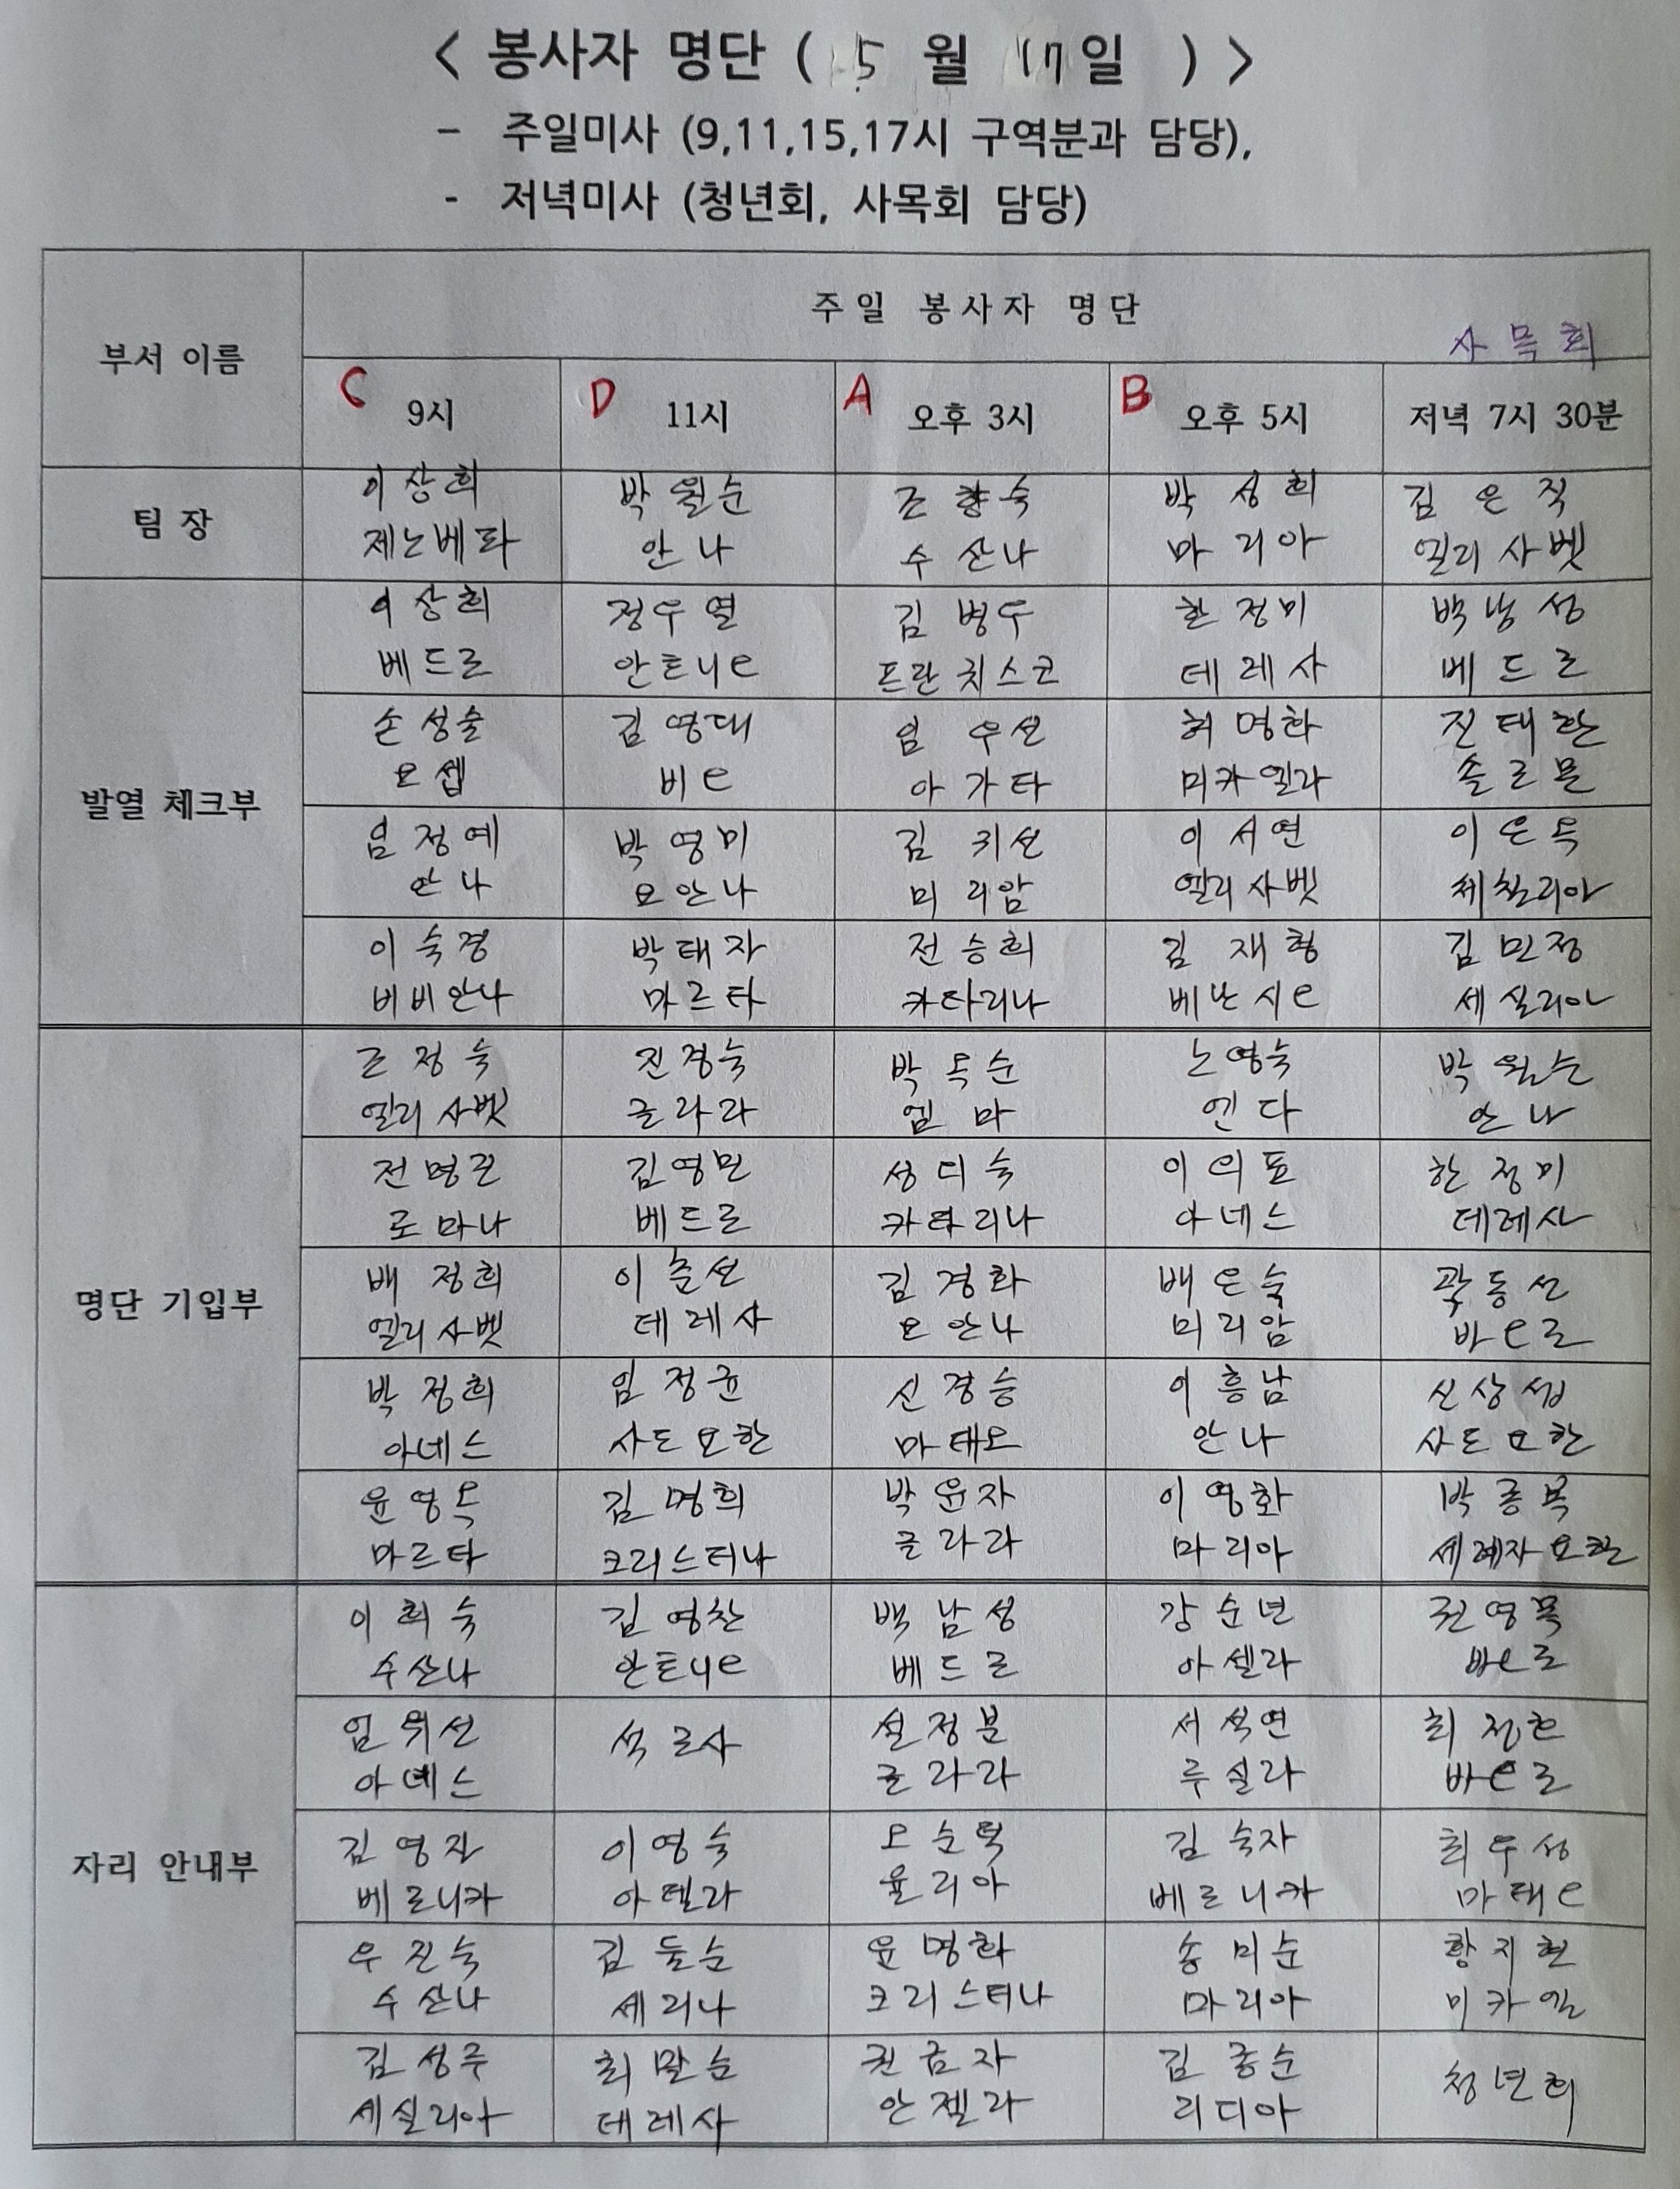 < 봉사자 명단 ( 5 월 17일 ) >
- 주일미사 (9,11,15,17시 구역분과 담당),
- 저녁미사 (청년회, 사목회 담당)
부서 이름
주일 봉사자 명단
사목회
C 9시
D 11시
A 오후 3시
B 오후 5시
저녁 7시 30분
팀 장
이상희
제노베파
박월순
안나
조향숙
수산나
박성희
마리아
김은직
엘리사벳
발열 체크부
이상희
베드로
정우열
안토니오
김병우
프란치스코
한정미
데레사
백남성
베드로
손성술
요셉
김영대
비오
임우선
아가타
허명화
미카엘라
진태환
솔로몬
임정예
안나
박영미
요안나
김귀선
미리암
이서연
엘리사벳
이은옥
체칠리아
이숙경
비비안나
박태자
마르타
전승희
카타리나
김재형
베난시오
김민정
세실리아
명단 기입부
조정숙
엘리사벳
진경숙
글라라
박옥순
엠마
노영숙
엔다
박월순
안나
전명조
로마나
김영민
베드로
성미숙
카타리나
이의표
아네스
한정미
데레사
배정희
엘리사벳
이춘선
데레사
김경화
요안나
배은숙
미리암
곽동선
바오로
박정희
아네스
임정균
사도요한
신경승
마태오
이흥남
안나
신상섭
사도요한
윤영옥
마르타
김명희
크리스티나
박윤자
글라라
이영화
마리아
박종복
세례자요한
자리 안내부
이희숙
수산나
김영찬
안토니오
백남성
베드로
강순년
아셀라
권영목
바오로
임위선
아네스
석로사
설정분
글라라
서석연
루실라
최정현
바오로
김영자
베로니카
이영숙
아델라
오순덕
율리아
김숙자
베로니카
최우성
마태오
우진숙
수산나
김둘순
세리나
윤명화
크리스티나
송미순
마리아
황지현
미카엘
김성주
세실리아
최말순
데레사
권금자
안젤라
김종순
리디아
청년회